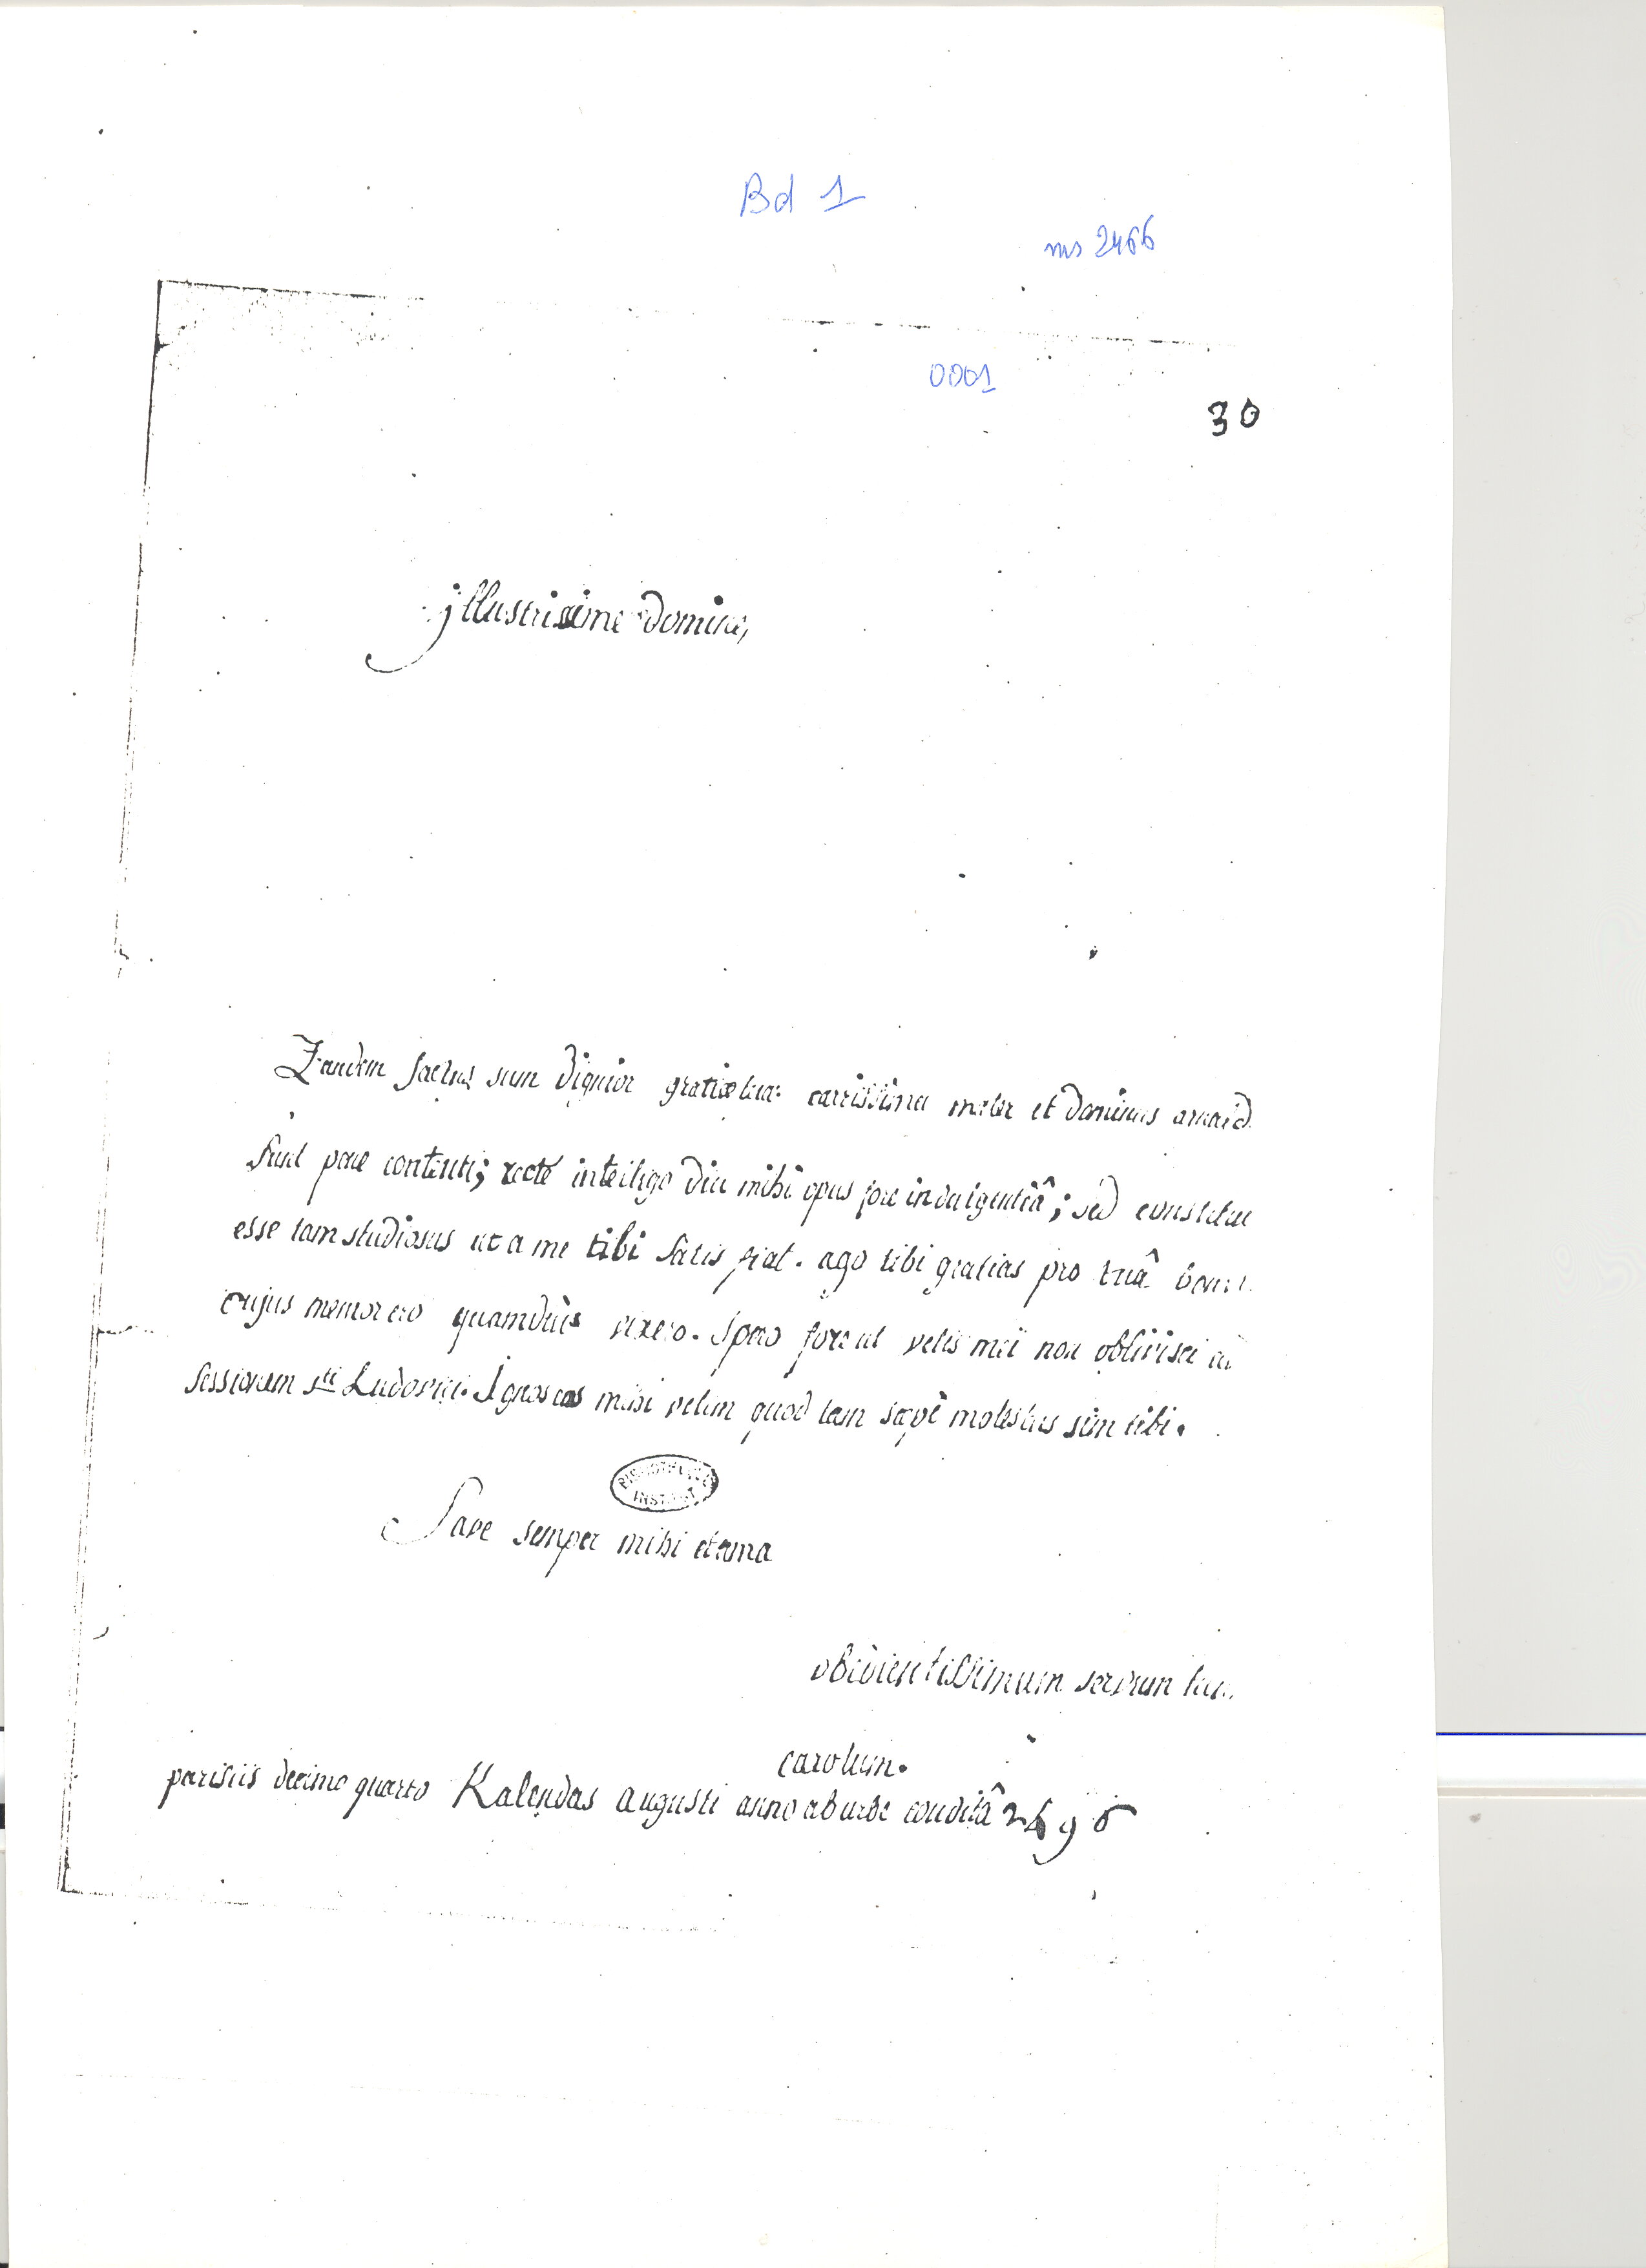 Bd 1
ms 2466
0001
30
jllustrissime domine,
Tandem factus sum dignior gratiæ tuæ: carissima mater et dominus arnaid
sunt pene contenti; recté intelligo diu mihi opus fore indulgentiâ; sed constitui
esse tam studiosus ut a me tibi satis fiat. ago tibi gratias pro tuâ
cujus memor ero quamdiù vixero. Spero fore ut velis mei non oblivisci
sessionem sti Ludovici. Ignoscas mihi velim quod tam sæpè molestus sim tibi.
BIBLIOTHEQUE
INSTITUT
Fave semper mihi et ama
obedientissimum servum
carolum.
parisiis decimo quarto Kalendas augusti anno ab urbe conditâ